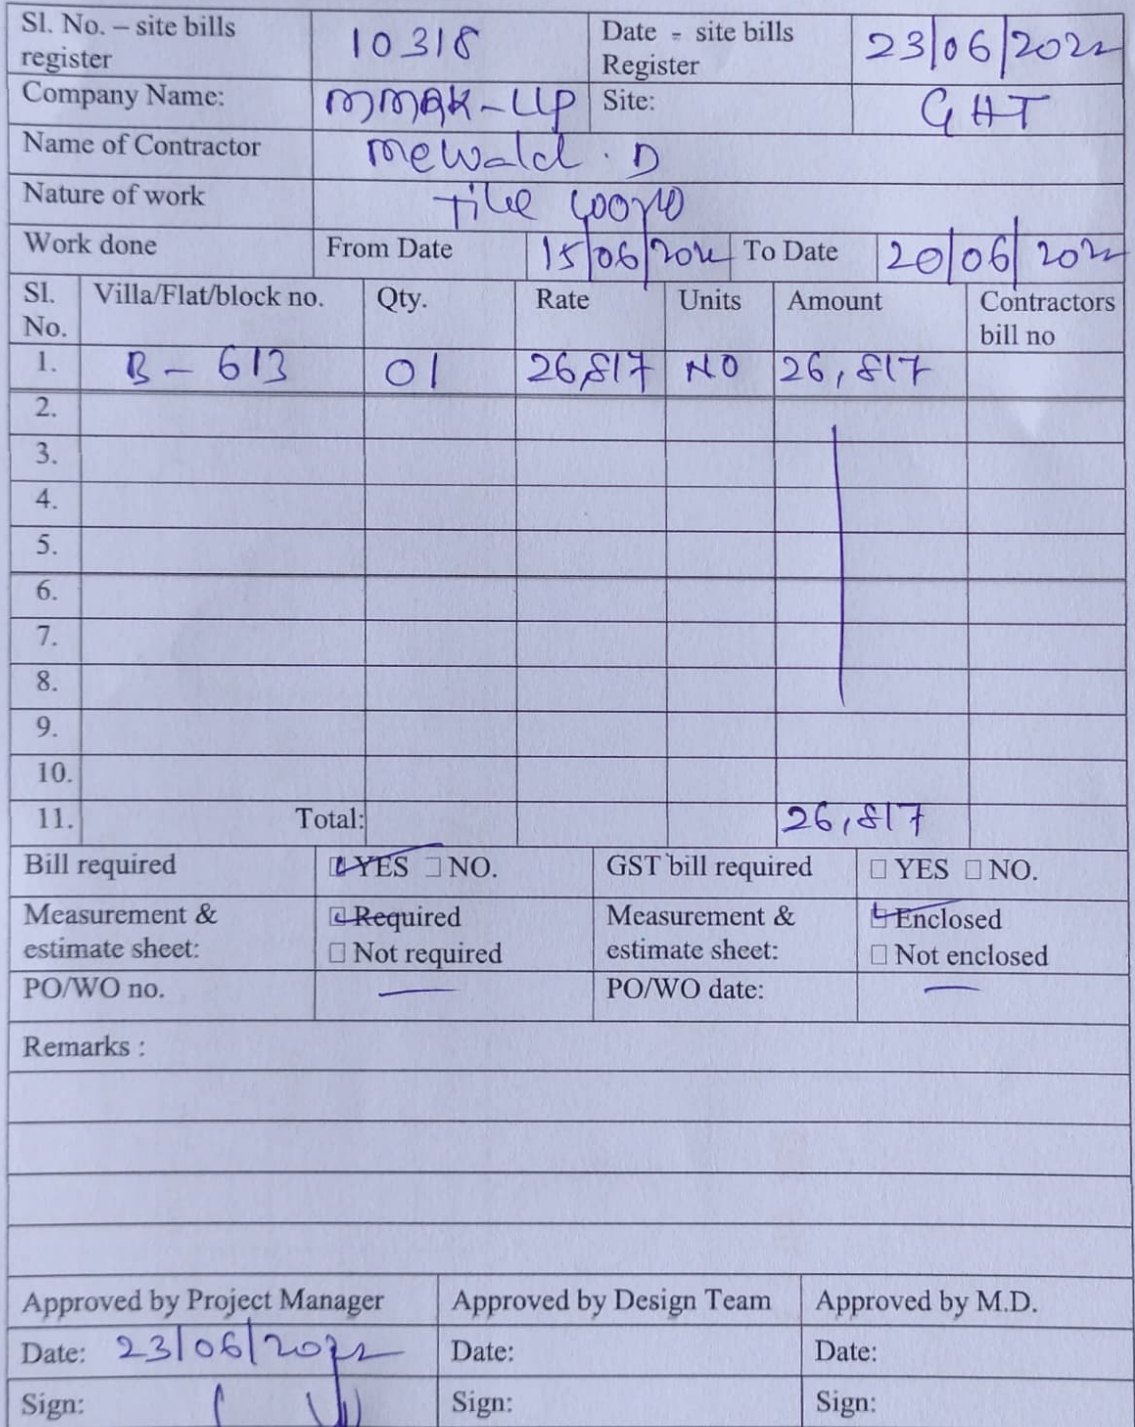 Sl. No. – site bills register 10318 Date - site bills Register 23/06/2022
Company Name: MMRK-LLP Site: GHT
Name of Contractor Mewald . D
Nature of work Tile work
Work done From Date 15/06/2022 To Date 20/06/2022
Sl. No. Villa/Flat/block no. Qty. Rate Units Amount Contractors bill no
1. B - 613 01 26,817 NO 26,817
2.
3.
4.
5.
6.
7.
8.
9.
10.
11. Total: 26,817
Bill required YES NO. GST bill required YES NO.
Measurement & estimate sheet: Required Not required Measurement & estimate sheet: Enclosed Not enclosed
PO/WO no. — PO/WO date: —
Remarks :
Approved by Project Manager Approved by Design Team Approved by M.D.
Date: 23/06/2022 Date: Date:
Sign: Sign: Sign: